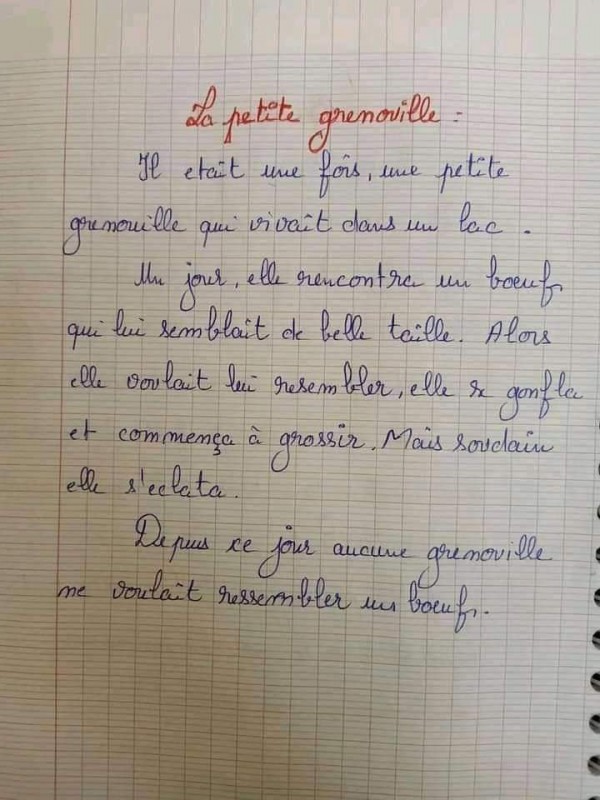 La petite grenouille :
Il etait une fois, une petite
grenouille qui vivait dans un lac .
Un jour, elle rencontra un boeuf
qui lui semblait de belle taille. Alors
elle voulait lui resembler, elle se gonfla
et commença à grossir. Mais soudain
elle s'eclata.
Depuis ce jour aucune grenouille
ne voulait ressembler un boeuf.